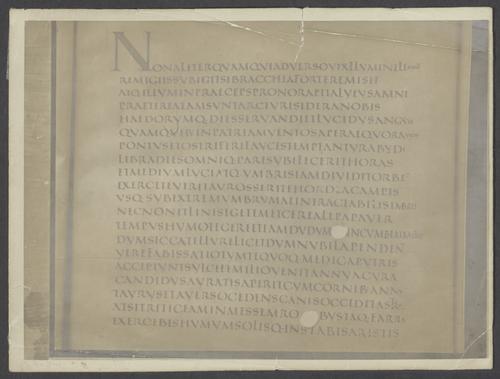 NONALITERQVAMQVIADVERSOVIXFLVMINELEMB
REMIGIISSVBIGITSIBRACCHIAFORTEREMISIT
ATQ·ILLVMINPRAECEPSPRONORAPITALVEVSAMNI
PRAETEREATAMSVNTARCTVRISIDERANOBIS
HAEDORVMQ·DIESSERVANDIETLVCIDVSANGVIS
QVAMQVIBVSINPATRIAMVENTOSAPERAEQVORA
PONTVSETOSTRIFERIFAVCESTEMPTANTVRABYDI
LIBRADIESOMNIQ·PARESVBIFECERITHORAS
ETMEDIVMLVCIATQ·VMBRISIAMDIVIDITORBE
EXERCETEVIRITAVROSSERITEHORDEACAMPIS
VSQ·SVBEXTREMVMBRVMAEINTRACTABILISIMBREM
NECNONETLINISEGETEMETCEREALEPAPAVER
TEMPVSHVMOTEGEREETIAMDVDVMINCVMBERE
DVMSICCATELLVRELICETDVMNVBILAPENDENT
VEREFABISSATIOTVMTEQVOQ·MEDICAPVTRIS
ACCIPIVNTSVLCIETMILIOVENITANNVACVRA
CANDIDVSAVRATISAPERITCVMCORNIBANN
TAVRVSETAVERSOCEDENSCANISOCCIDITAS
ATSITRITICEAMINMESSEMROBVSTAQ·FARRA
EXERCEBISHVMVMSOLISQ·INSTABISARISTIS